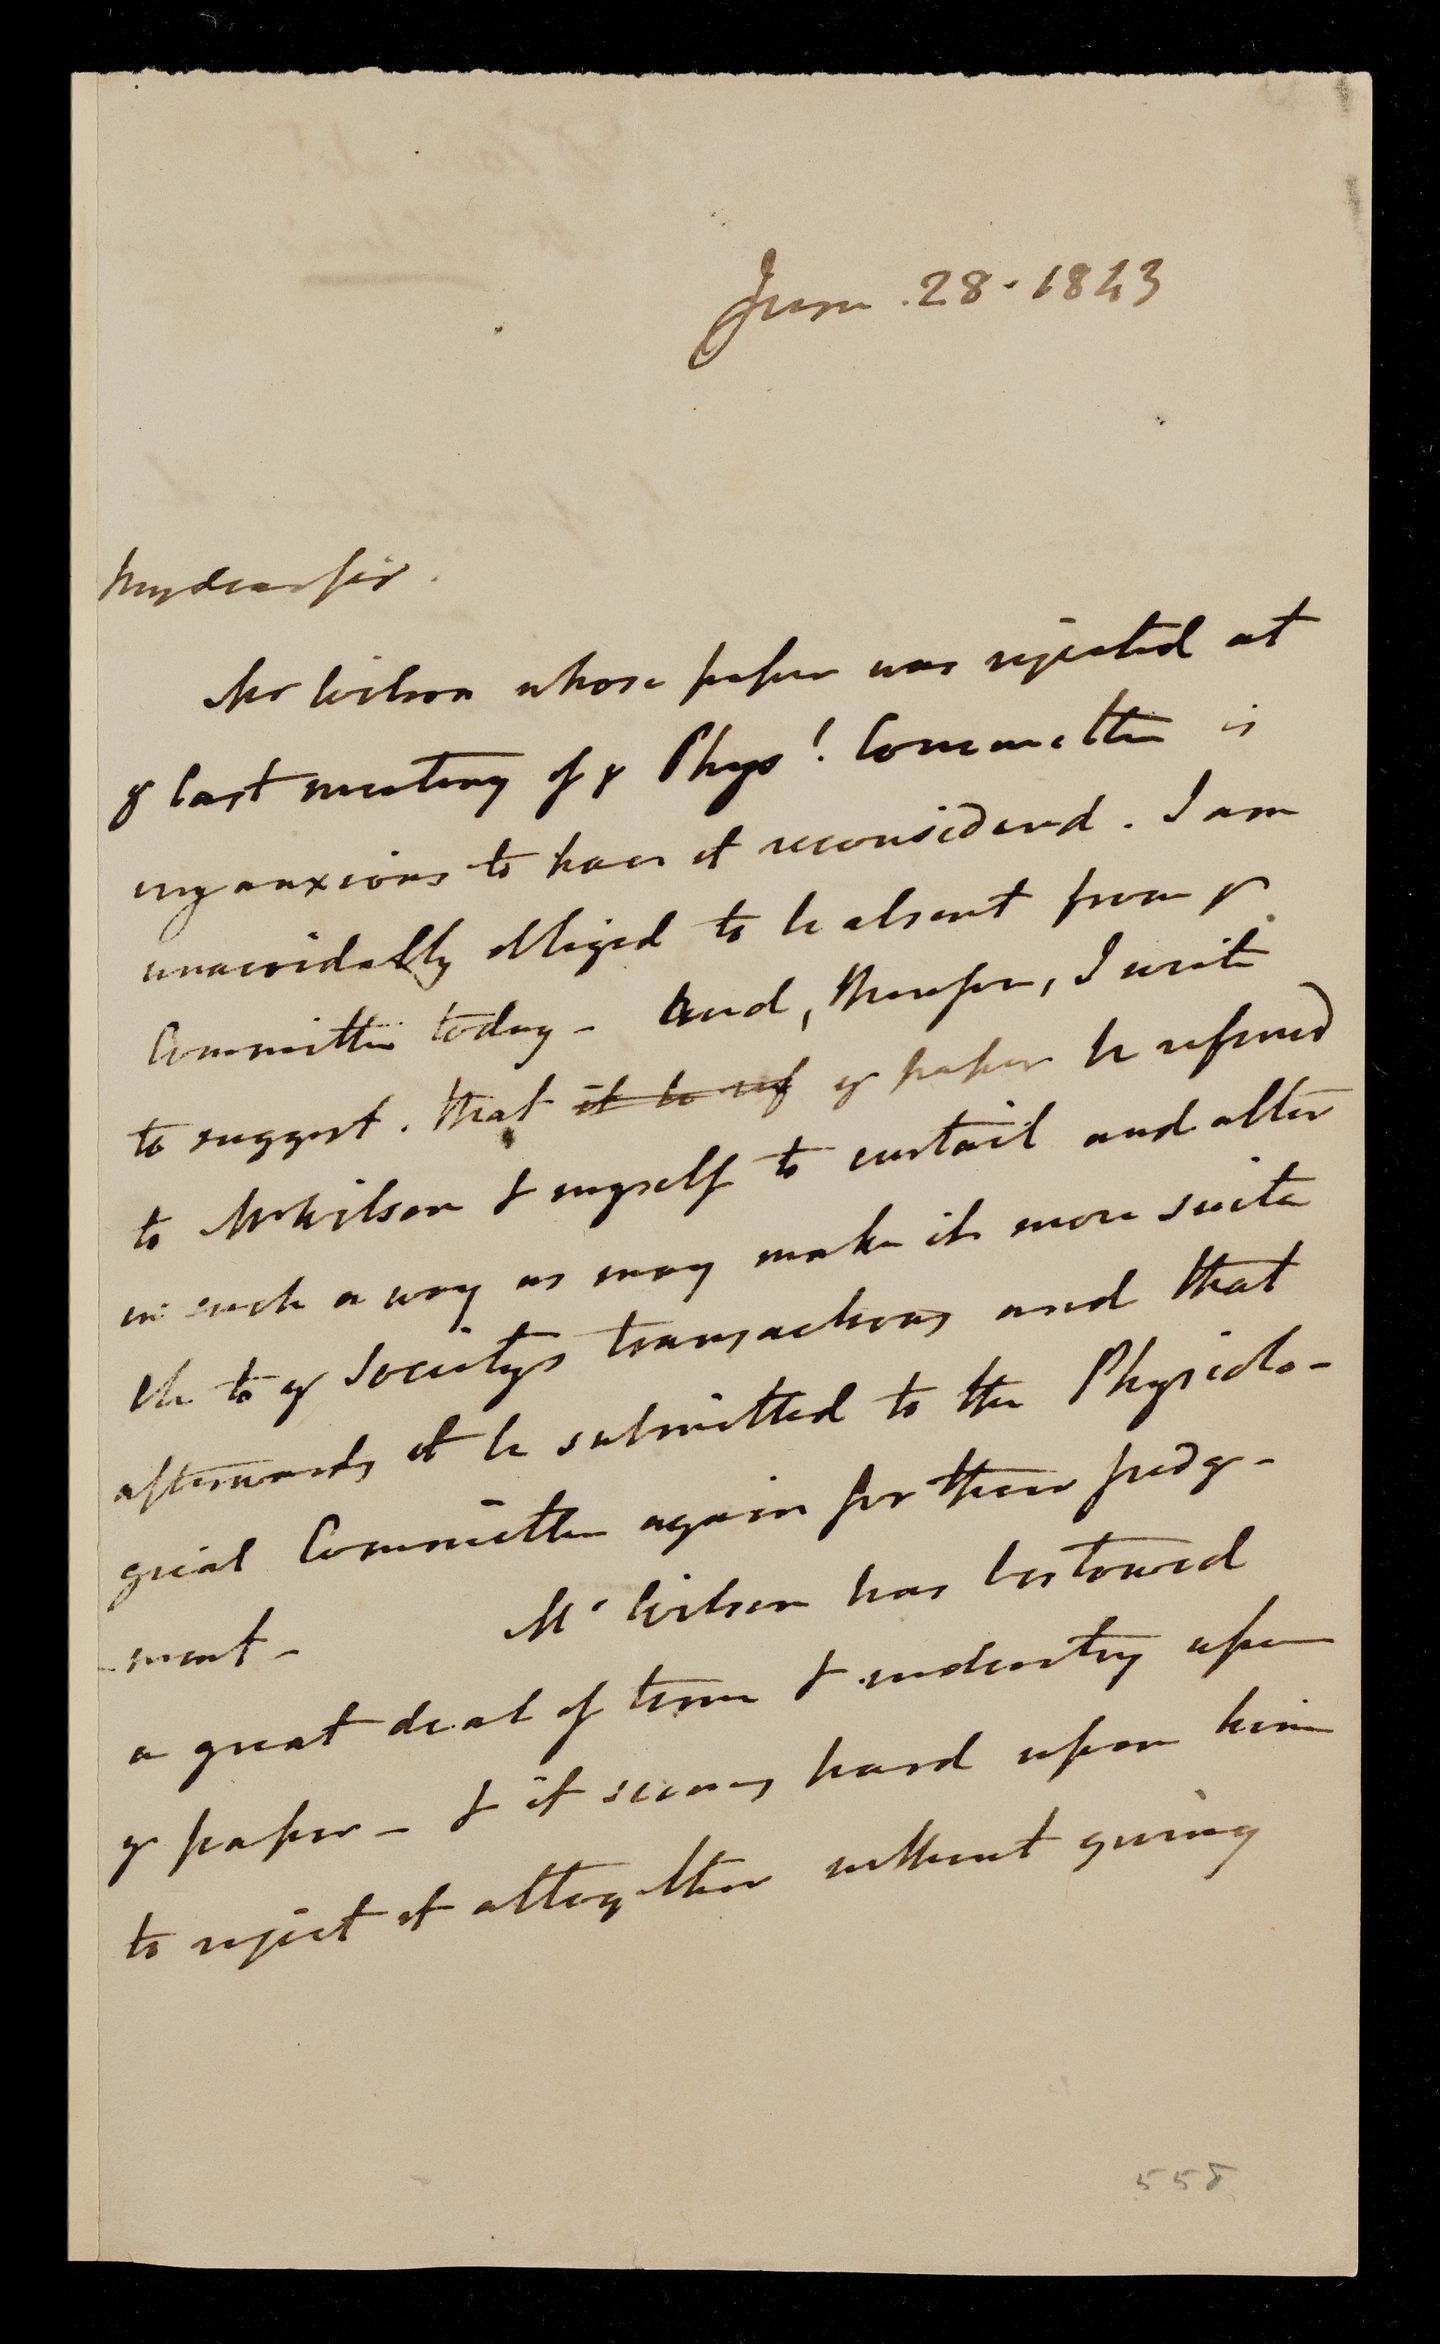 June . 28 . 1843
My dear Sir .
Mr Wilson whose paper was rejected at
ye last meeting of ye Physl. Committee is
very anxious to have it reconsidered . I am
unavoidably obliged to be absent from ye
Committee today - And, therefore, I write
to suggest . that it be ref ye paper be referred
to Mr Wilson & myself to curtail and alter
in such a way as may make it more suita
ble to ye Society's transactions and that
afterwards it be submitted to the Physiolo-
gical Committee again for their judg-
-ment - Mr Wilson has bestowed
a great deal of time & industry upon
ye paper - & it seems hard upon him
to reject it altogether without giving
558